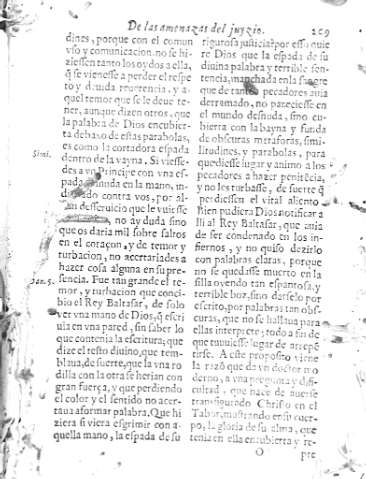 De las amenazas del juyzio.
209
dines, porque con el comun
vso y comunicacion no se hi-
ziessen tanto los oydos a ella,
q̃ se viniesse a perder el respe-
to y deuida reuerencia, y a-
quel temor que se le deue te-
ner, aunque dizen otros, que
la palabra de Dios encubier-
ta debaxo de estas parabolas,
es como la cortadora espada
dentro de la vayna. Si viesse-
Simi.
des a vn Principe con vna es-
pada desnuda en la mano, in-
contra vos, por al-
gun desseruicio que le vuiesse
no ay duda sino
que os daria mil sobre saltos
en el coraçon, y de temor y
turbacion, no acertariades a
hazer cosa alguna en su pre-
sencia. Fue tan grande el te-
Dan. 5.
mor, y turbacion que conci-
bio el Rey Baltasar, de solo
ver vna mano de Dios, q̃ escri
uia en vna pared, sin saber lo
que contenia la escritura; que
dize el testo diuino, que tem-
blaua, de suerte, que la vna ro
dilla con la otra se herian con
gran fuerça, y que perdiendo
el color y el sentido no acer-
taua a formar palabra. Que hi
ziera si viera esgrimir con a-
quella mano, la espada de su
rigurosa justicia? por esso quie
re Dios que la espada de su
diuina palabra y terrible sen-
tencia, manchada en la sangre
que de tantos pecadores auia
derramado, no pareciesse en
el mundo desnuda, sino cu-
bierta con la bayna y funda
de obscuras metaforas, simi-
litudines, y parabolas, para
que diesse lugar y animo a los
pecadores a hazer penitẽcia,
y no les turbasse, de suerte q̃
perdiessen el vital aliento
Bien pudiera Dios notificar a
lli al Rey Baltasar, que auia
de ser condenado en los in-
fiernos, y no quiso dezirlo
con palabras claras, porque
no se quedasse muerto en la
silla oyendo tan espantosa, y
terrible boz, sino darselo por
escrito, por palabras tan obs-
curas, que no se hallaua para
ellas interprete; todo a fin de
que tuuiesse lugar de arrepẽ
tirse. A este proposito viene
la razõ que da vn doctor mo
derno, a vna pregunta y difi-
cultad, que nace de auerse
transfigurado Christo en el
Tabor, mostrando en su cuer-
po, la gloria de su alma, que
tenia en ella encubierta y re-
O
pre